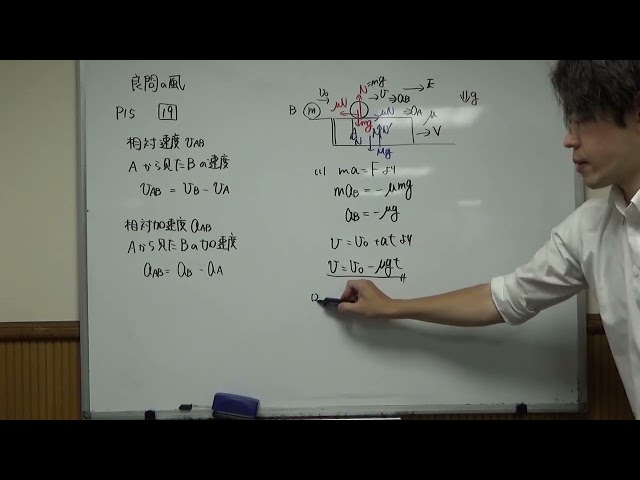 良問の風
P15 19
相対速度 VAB
Aから見たBの速度
VAB = VB - VA
相対加速度 aAB
Aから見たBの加速度
aAB = aB - aA
B m v0 μN N=mg v aB E g
mg μN aA μ
N N' Mg V
(1) ma = F より
maB = -μmg
aB = -μg
v = v0 + at より
v = v0 - μgt